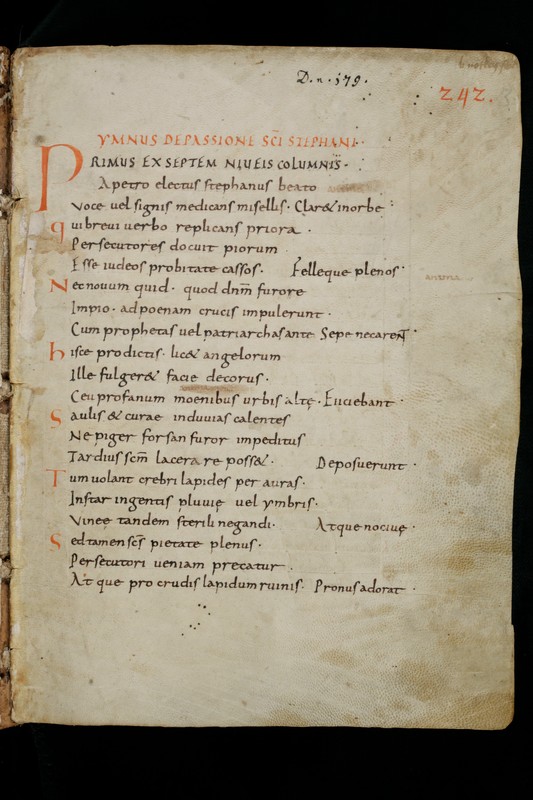 D. n. 179.
242.
YMNUS DEPASSIONE SC̄I STEPHANI·
PRIMUS EX SEPTEM NIUEIS COLUMNIS·
A petro electus stephanus beato
Voce uel signis medicans misellis· Clar& inorbe
quibreui uerbo replicans priora·
Persecutores docuit piorum
Esse iudeos probitate cassos· Felleque plenos·
Necnouum quid· quod dnm̄ furore
Impio· adpoenam crucis impulerunt·
Cum prophetas uel patriarchas ante Sepe necarent
hisce prodictis· lic& angelorum
Ille fulger& facie decorus·
Ceu profanum moenibus urbis altę· Eiiciebant·
Saulis & curae induuias calentes
Ne piger forsan furor impeditus
Tardius sc̄m lacerare poss&· Deposuerunt·
Tum uolant crebri lapides per auras·
Instar ingentis pluuię uel ymbris·
Vineę tandem sterili negandi· Atque nociuę·
Sed tamen sc̄s pietate plenus·
Persecutori ueniam precatur·
At que pro crudis lapidum ruinis· Pronus adorat·